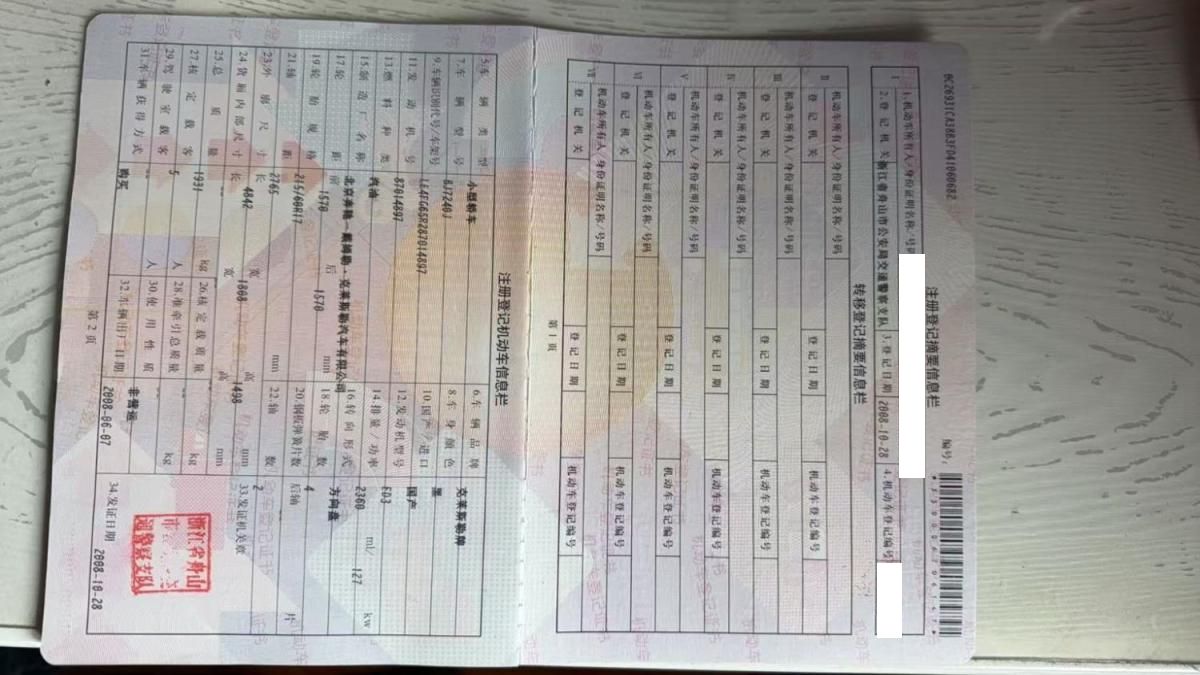 注册登记摘要信息栏
编号:
1.机动车所有人/身份证明名称/号码
2.登记机关 浙江省舟山市公安局交通警察支队 3.登记日期 2008-10-28 4.机动车登记编号
转移登记摘要信息栏
II 机动车所有人/身份证明名称/号码
登记机关 登记日期 机动车登记编号
III 机动车所有人/身份证明名称/号码
登记机关 登记日期 机动车登记编号
IV 机动车所有人/身份证明名称/号码
登记机关 登记日期 机动车登记编号
V 机动车所有人/身份证明名称/号码
登记机关 登记日期 机动车登记编号
VI 机动车所有人/身份证明名称/号码
登记机关 登记日期 机动车登记编号
VII 机动车所有人/身份证明名称/号码
登记机关 登记日期 机动车登记编号
第1页
注册登记机动车信息栏
5.车辆类型 小型轿车 6.车辆品牌 克莱斯勒牌
7.车辆型号 BJ7240J 8.车身颜色 黑
9.车辆识别代号/车架号 10.国产/进口 国产
11.发动机号 87014897 12.发动机型号 ED3
13.燃料种类 汽油 14.排量/功率 2360 ml/ 127 kw
15.制造厂名称 北京奔驰-戴姆勒·克莱斯勒汽车有限公司 16.转向形式 方向盘
17.轮距 前 1570 后 1570 mm 18.轮胎数 4
19.轮胎规格 215/60R17 20.钢板弹簧片数 后轴 片
21.轴距 2765 mm 22.轴数 2
23.外廓尺寸 长 4842 宽 1808 高 1498 mm 33.发证机关章
24.货厢内部尺寸 长 宽 高 mm
25.总质量 1931 kg 26.核定载质量 kg
27.核定载客 5 人 28.准牵引总质量 kg
29.驾驶室载客 人 30.使用性质 非营运
31.车辆获得方式 购买 32.车辆出厂日期 2008-06-07 34.发证日期 2008-10-28
浙江省舟山
第2页